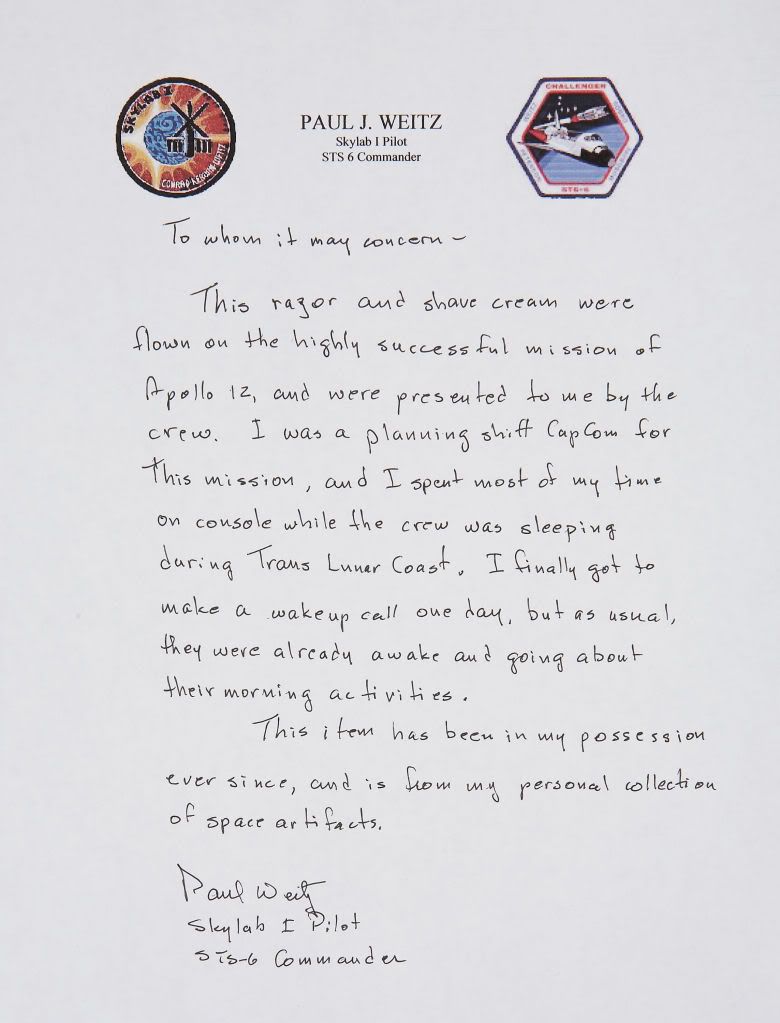 SKYLAB I
CONRAD·KERWIN·WEITZ
PAUL J. WEITZ
Skylab I Pilot
STS 6 Commander
CHALLENGER
STS-6
To whom it may concern –
This razor and shave cream were
flown on the highly successful mission of
Apollo 12, and were presented to me by the
crew. I was a planning shift CapCom for
this mission, and I spent most of my time
on console while the crew was sleeping
during Trans Lunar Coast. I finally got to
make a wakeup call one day, but as usual,
they were already awake and going about
their morning activities.
This item has been in my possession
ever since, and is from my personal collection
of space artifacts.
Paul Weitz
Skylab I Pilot
STS-6 Commander